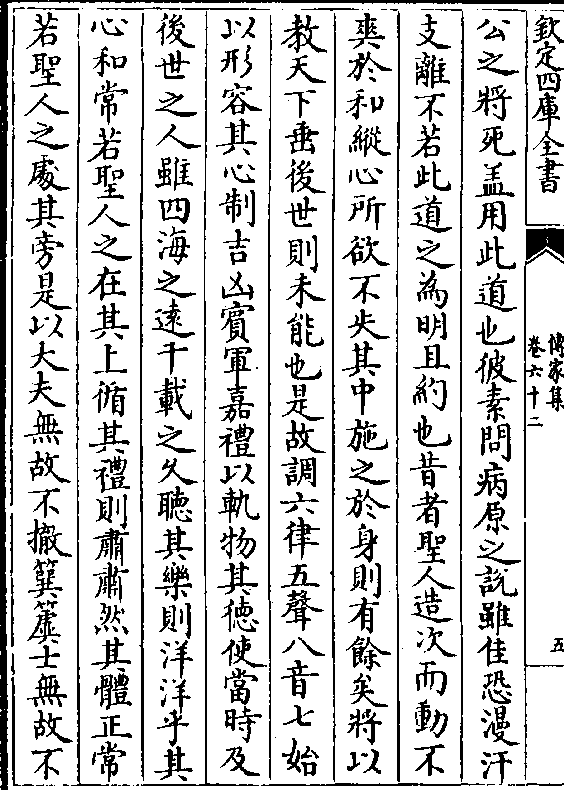 欽定四庫全書
傳家集
卷六十二
五
公之將死盖用此道也彼素問病原之說雖佳恐漫汗
支離不若此道之為明且約也昔者聖人造次而動不
爽於和縱心所欲不失其中施之於身則有餘矣將以
教天下垂後世則未能也是故調六律五聲八音七始
以形容其心制吉凶賓軍嘉禮以軌物其徳使當時及
後世之人雖四海之逺千載之乆聽其樂則洋洋乎其
心和常若聖人之在其上循其禮則肅肅然其體正常
若聖人之處其旁是以大夫無故不撤簨簴士無故不